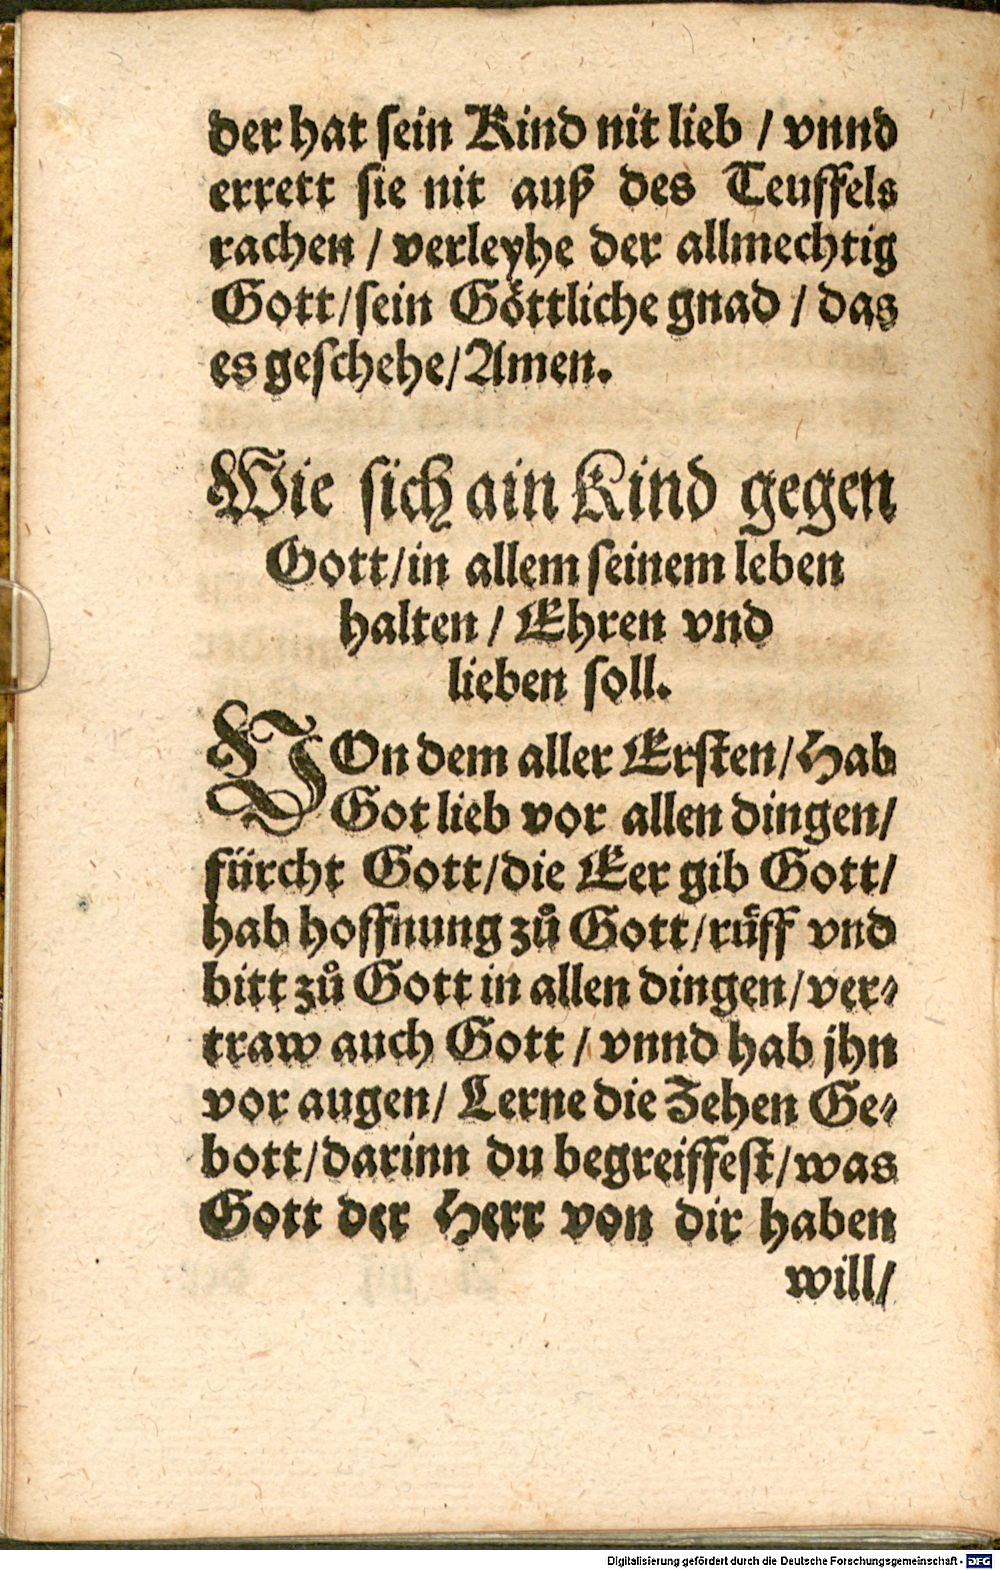 der hat sein Kind nit lieb / vnnd
errett sie nit auß des Teuffels
rachen / verleyhe der allmechtig
Gott/sein Göttliche gnad / das
es geschehe/Amen.
Wie sich ain Kind gegen
Gott/in allem seinem leben
halten / Ehren vnd
lieben soll.
VOn dem aller Ersten/Hab
Got lieb vor allen dingen/
fürcht Gott/die Eer gib Gott/
hab hoffnung zuͦ Gott/ruͤff vnd
bitt zuͦ Gott in allen dingen/ver-
traw auch Gott / vnnd hab jhn
vor augen/ Lerne die Zehen Ge-
bott/darinn du begreiffest/was
Gott der Herr von dir haben
will/
Digitalisierung gefördert durch die Deutsche Forschungsgemeinschaft - DFG